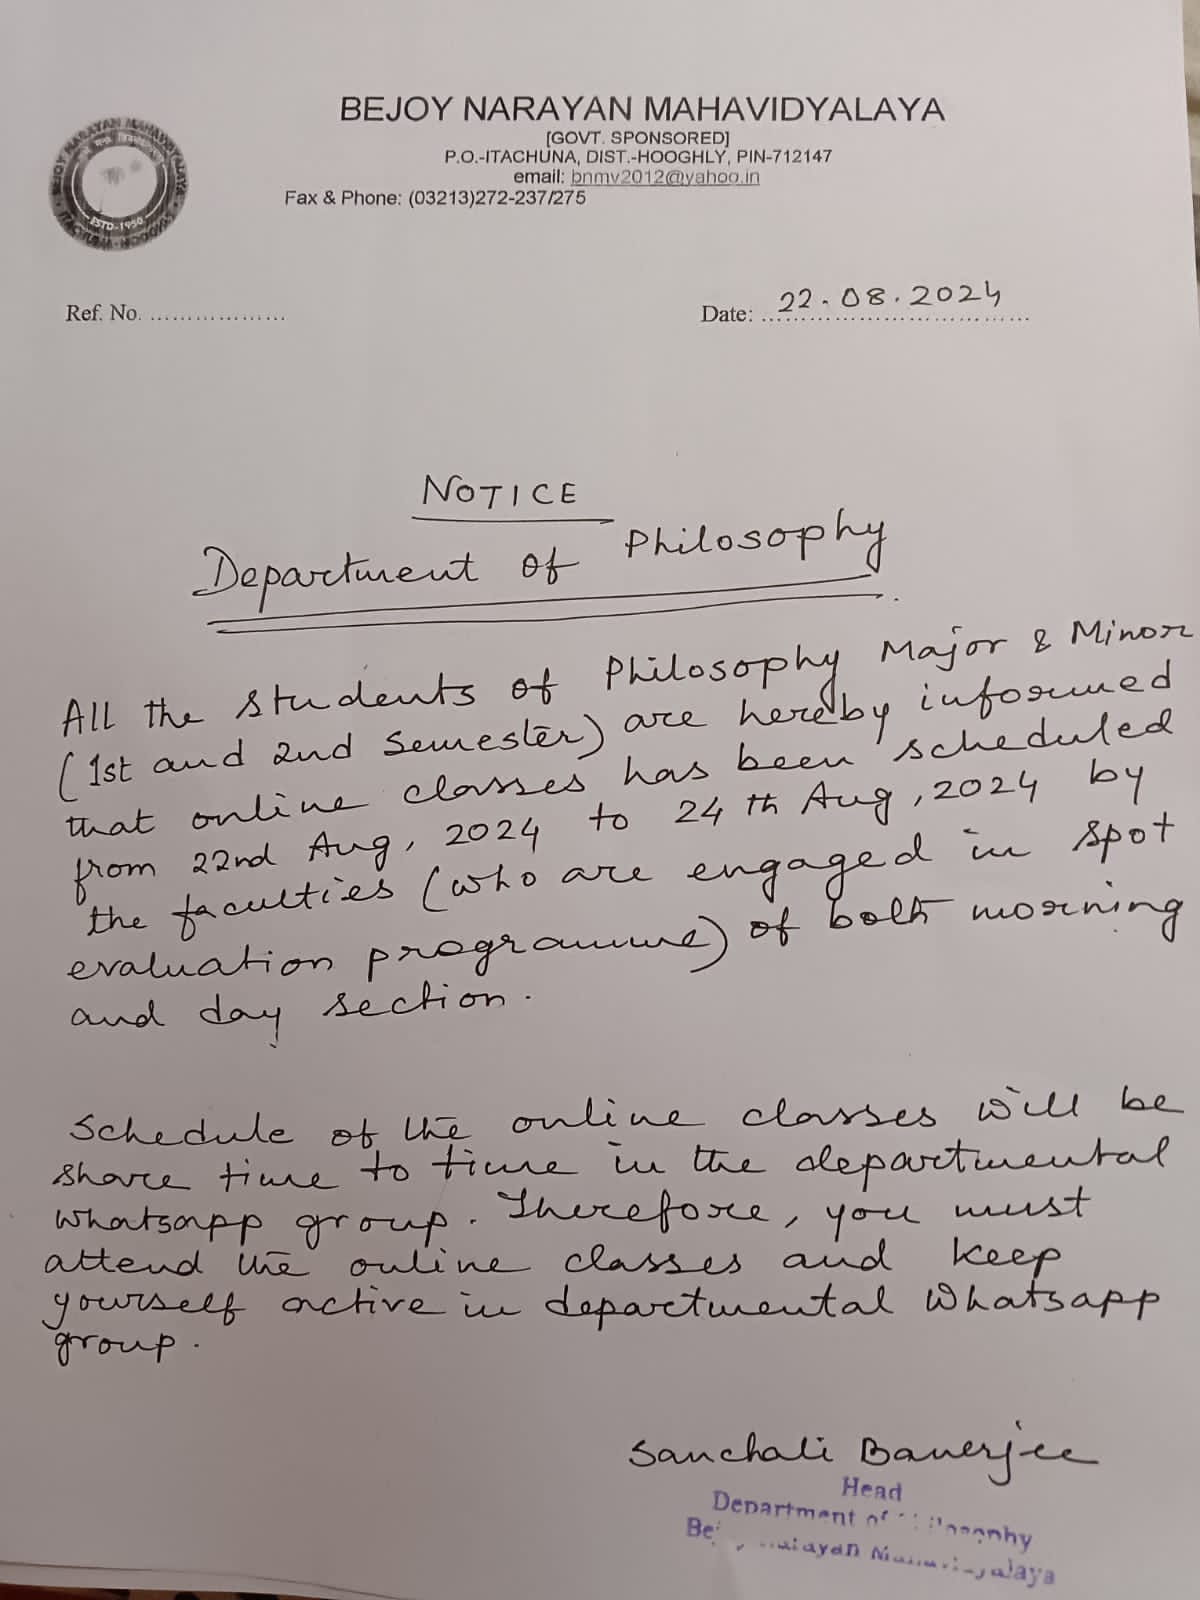 BEJOY NARAYAN MAHAVIDYALAYA
[GOVT. SPONSORED]
P.O.-ITACHUNA, DIST.-HOOGHLY, PIN-712147
email: bnmv2012@yahoo.in
Fax & Phone: (03213)272-237/275
BEJOY NARAYAN MAHAVIDYALAYA
ESTD-1950
ITACHUNA HOOGHLY
Ref. No. ..................
Date: 22.08.2024
NOTICE
Department of Philosophy
All the students of Philosophy Major & Minor
(1st and 2nd Semester) are hereby informed
that online classes has been scheduled
from 22nd Aug, 2024 to 24th Aug, 2024 by
the faculties (who are engaged in spot
evaluation programme) of both morning
and day section.
Schedule of the online classes will be
share time to time in the departmental
whatsapp group. Therefore, you must
attend the online classes and keep
yourself active in departmental Whatsapp
group.
Sanchali Banerjee
Head
Department of Philosophy
Bejoy Narayan Mahavidyalaya